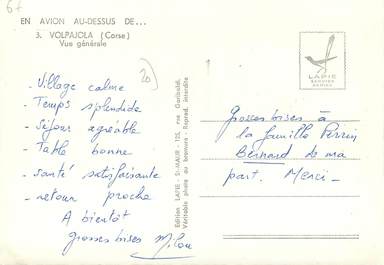 6f
EN AVION AU-DESSUS DE...
3. VOLPAJOLA (Corse)
Vue générale
20
LAPIE
- Village calme
- Temps splendide
- Séjour agréable
- Table bonne
- santé satisfaisante
- retour proche
A bientôt
grosses bises Milou
Edition LAPIE - St-MAUR - 125, rue Garibaldi
Véritable photo au bromure - Reprod. interdite
grosses bises à
la famille Perrin
Bernard de ma
part. Merci -